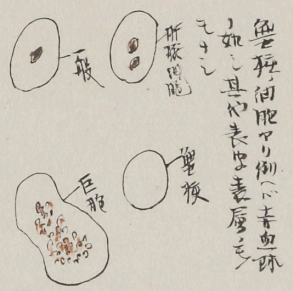 無核ノ細胞アリ例ヘバ赤血球
ノ如シ其他表皮表層ニモ
モナシ
肝臓細胞
一般
無核
巨胞